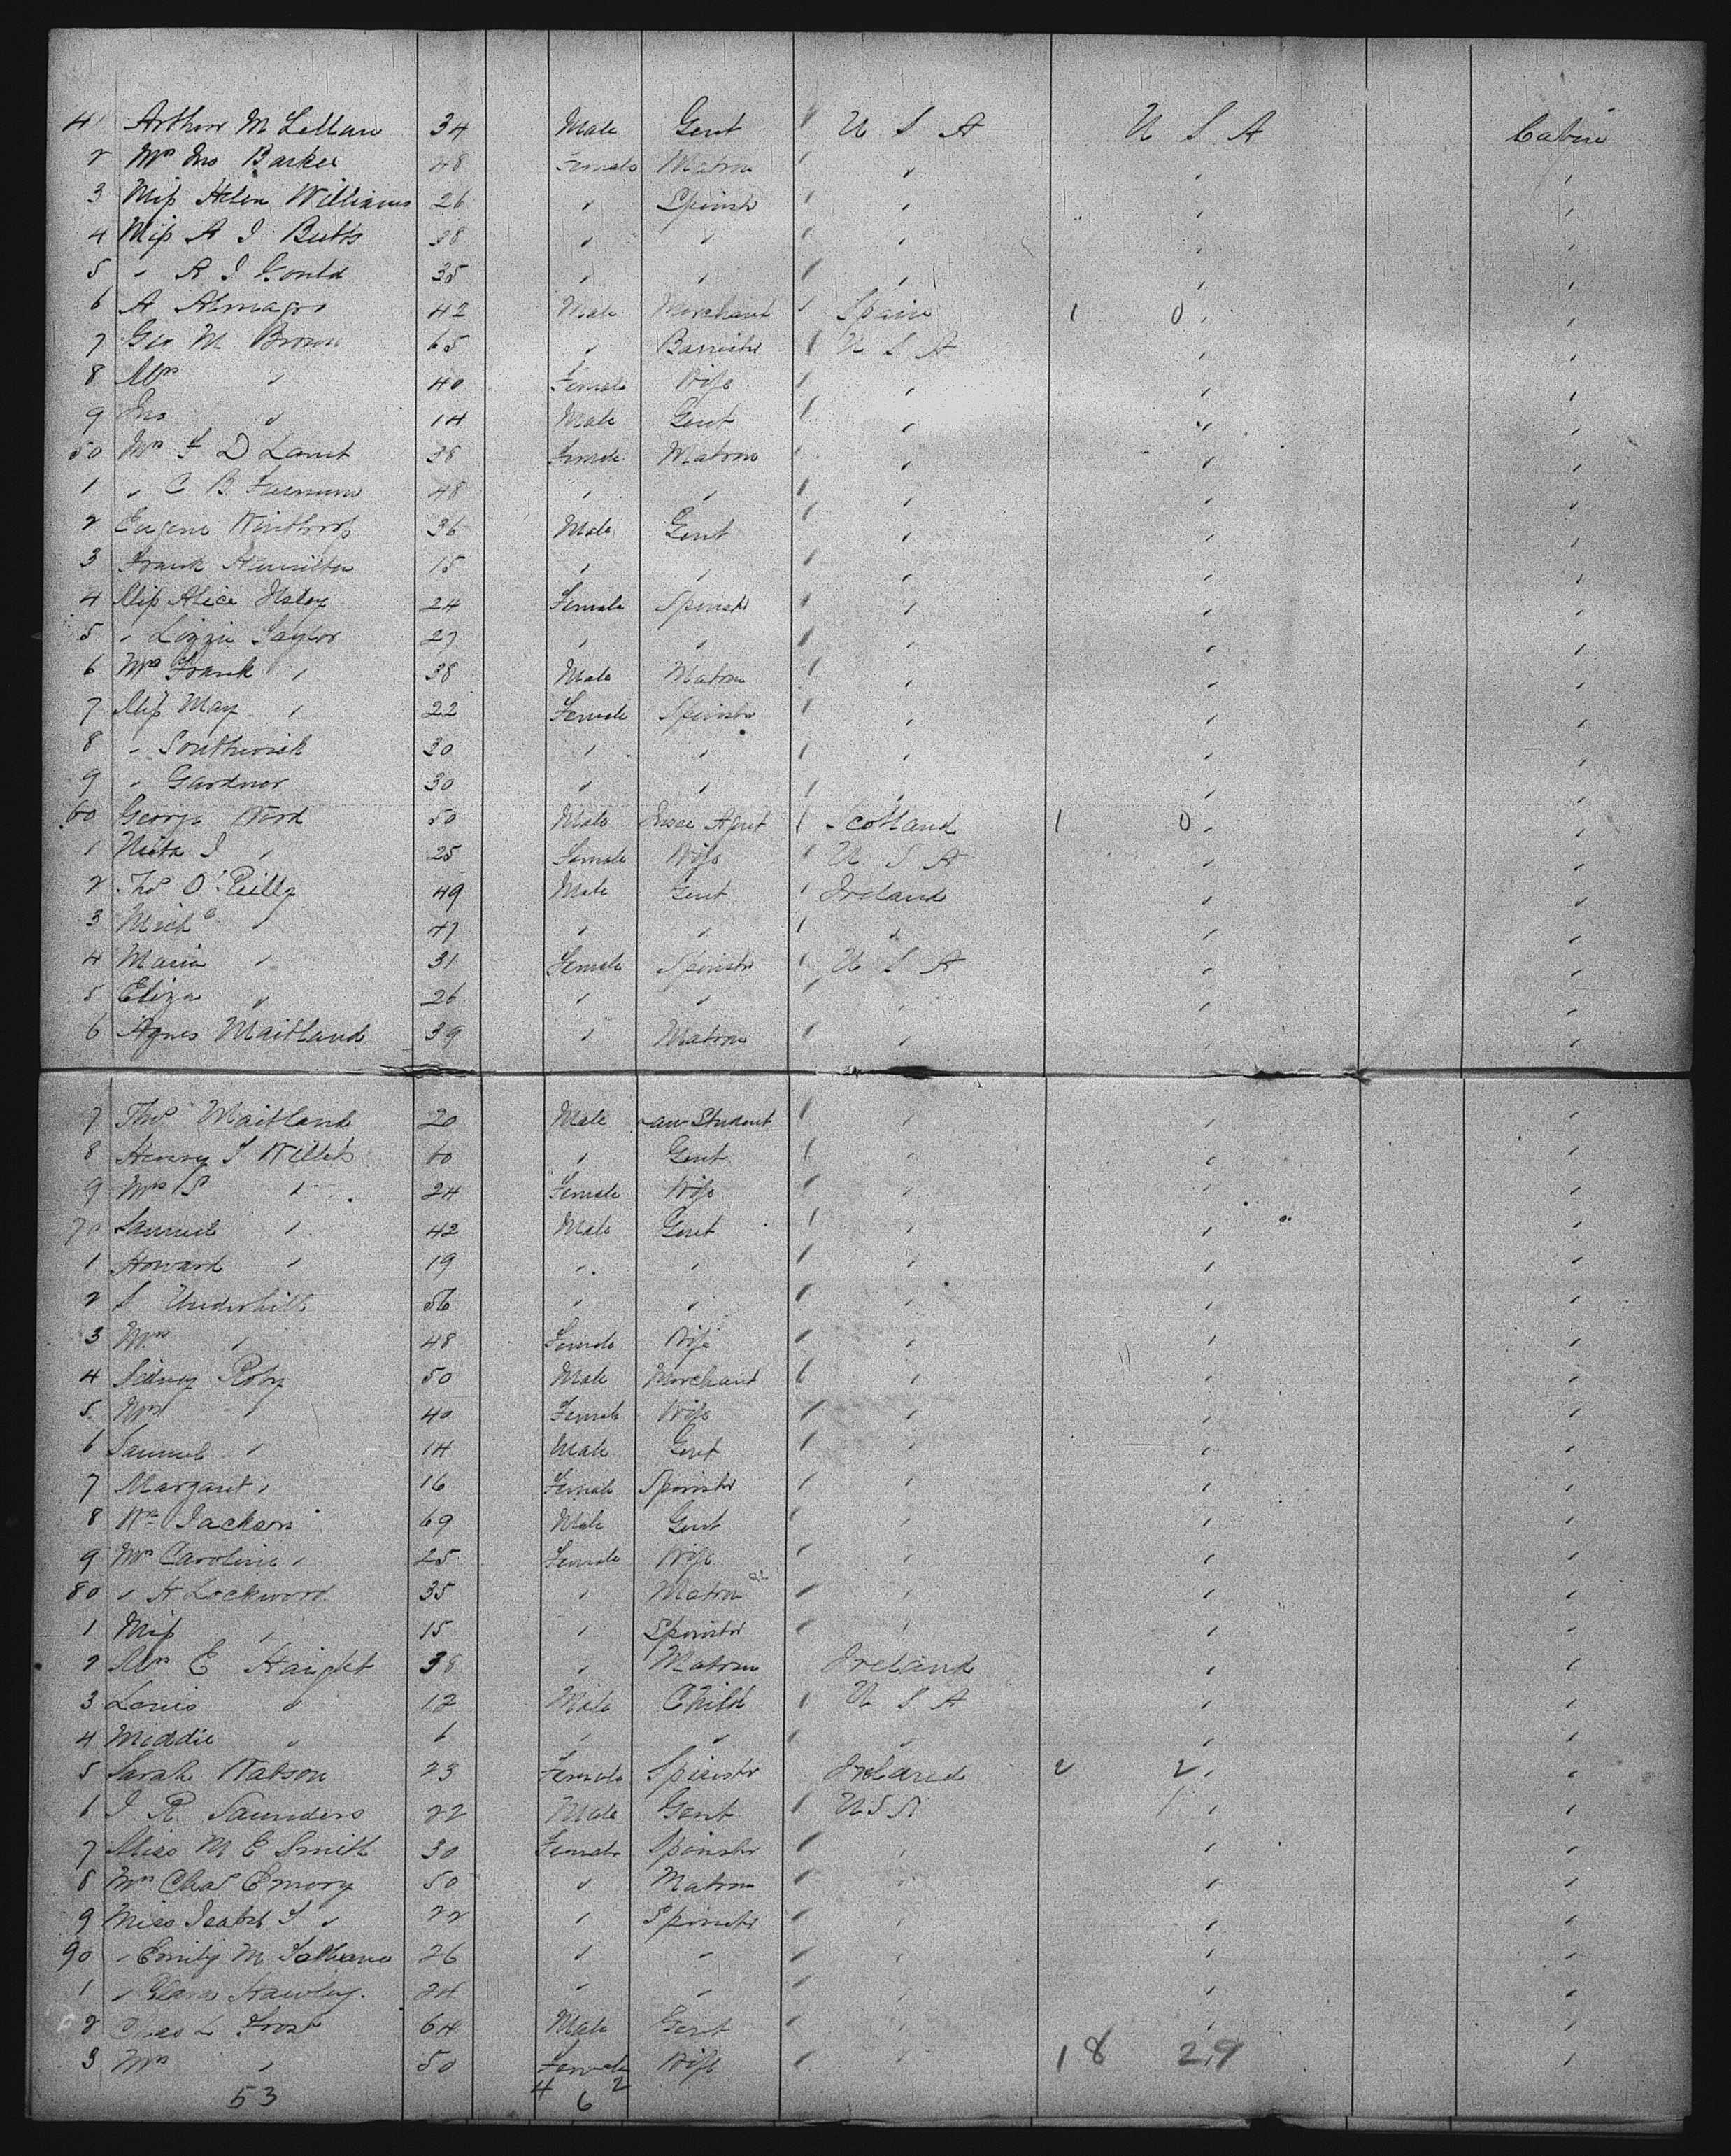 41 Arthur M Lillian 34 Male Gent U S A U S A Cabin
2 Mrs Jno Barker 48 Female Matron " " "
3 Miss Helen Williams 26 " Spinstr " " "
4 Miss A J Butts 38 " " " " "
5 " A J Gould 35 " " " " "
6 A Almagro 42 Male Merchant Spain 1 0 " "
7 Geo M Brown 65 " Barristr U S A " "
8 Mrs " 40 Female Wife " " "
9 Jno " 14 Male Gent " " "
50 Mrs F D 38 Female Matron " " "
1 " C B 48 " " " " "
2 Eugene Winthrop 36 Male Gent " " "
3 Frank Hamilton 15 " " " " "
4 Miss Alice Ilsley 24 Female Spinstr " " "
5 " Lizzie Taylor 27 " " " " "
6 Mrs Frank " 38 Male Matron " " "
7 Miss May " 22 Female Spinstr " " "
8 " Southwick 30 " " " " "
9 " Gardner 30 " " " " "
60 George Word 50 Male Insce Agent Scotland 1 0 " "
1 Neita J " 25 Female Wife U S A " "
2 Thos O'Reilly 49 Male Gent Ireland " "
3 Michl " 47 " " " " "
4 Maria " 31 Female Spinstr U S A " "
5 Eliza " 26 " " " " "
6 Agnes Maitland 39 " Matron " " "
7 Thos Maitland 20 Male Law Student " " "
8 Henry S Willets 60 " Gent " " "
9 Mrs S " 24 Female Wife " " "
70 Samuel " 42 Male Gent " " "
1 Howard " 19 " " " " "
2 S Underhill 56 " " " " "
3 Mrs " 48 Female Wife " " "
4 Sidney Roby 50 Male Merchant " " "
5 Mrs " 40 Female Wife " " "
6 Samuel " 14 Male Gent " " "
7 Margaret " 16 Female Spinstr " " "
8 Wm Jackson 69 Male Gent " " "
9 Mrs Caroline " 25 Female Wife " " "
80 " H Lockwood 35 " Matron " " "
1 Miss " 15 " Spinstr " " "
2 Mrs E Haight 38 " Matron Ireland " "
3 Louis " 12 Male Child U S A " "
4 Middie " 6 " " " " "
5 Sarah Watson 23 Female Spinstr Ireland 2 2 " "
6 J R Saunders 22 Male Gent U S A " "
7 Miss M E Smith 30 Female Spinstr " " "
8 Mrs Chas Emory 50 " Matron " " "
9 Miss Isabel S " 22 " Spinstr " " "
90 " Emily M 26 " " " " "
1 " Clara Hawley 24 " " " " "
2 Chas L Frost 64 Male Gent " " "
3 Mrs " 50 Female Wife " 18 29 "
53 4 6 2